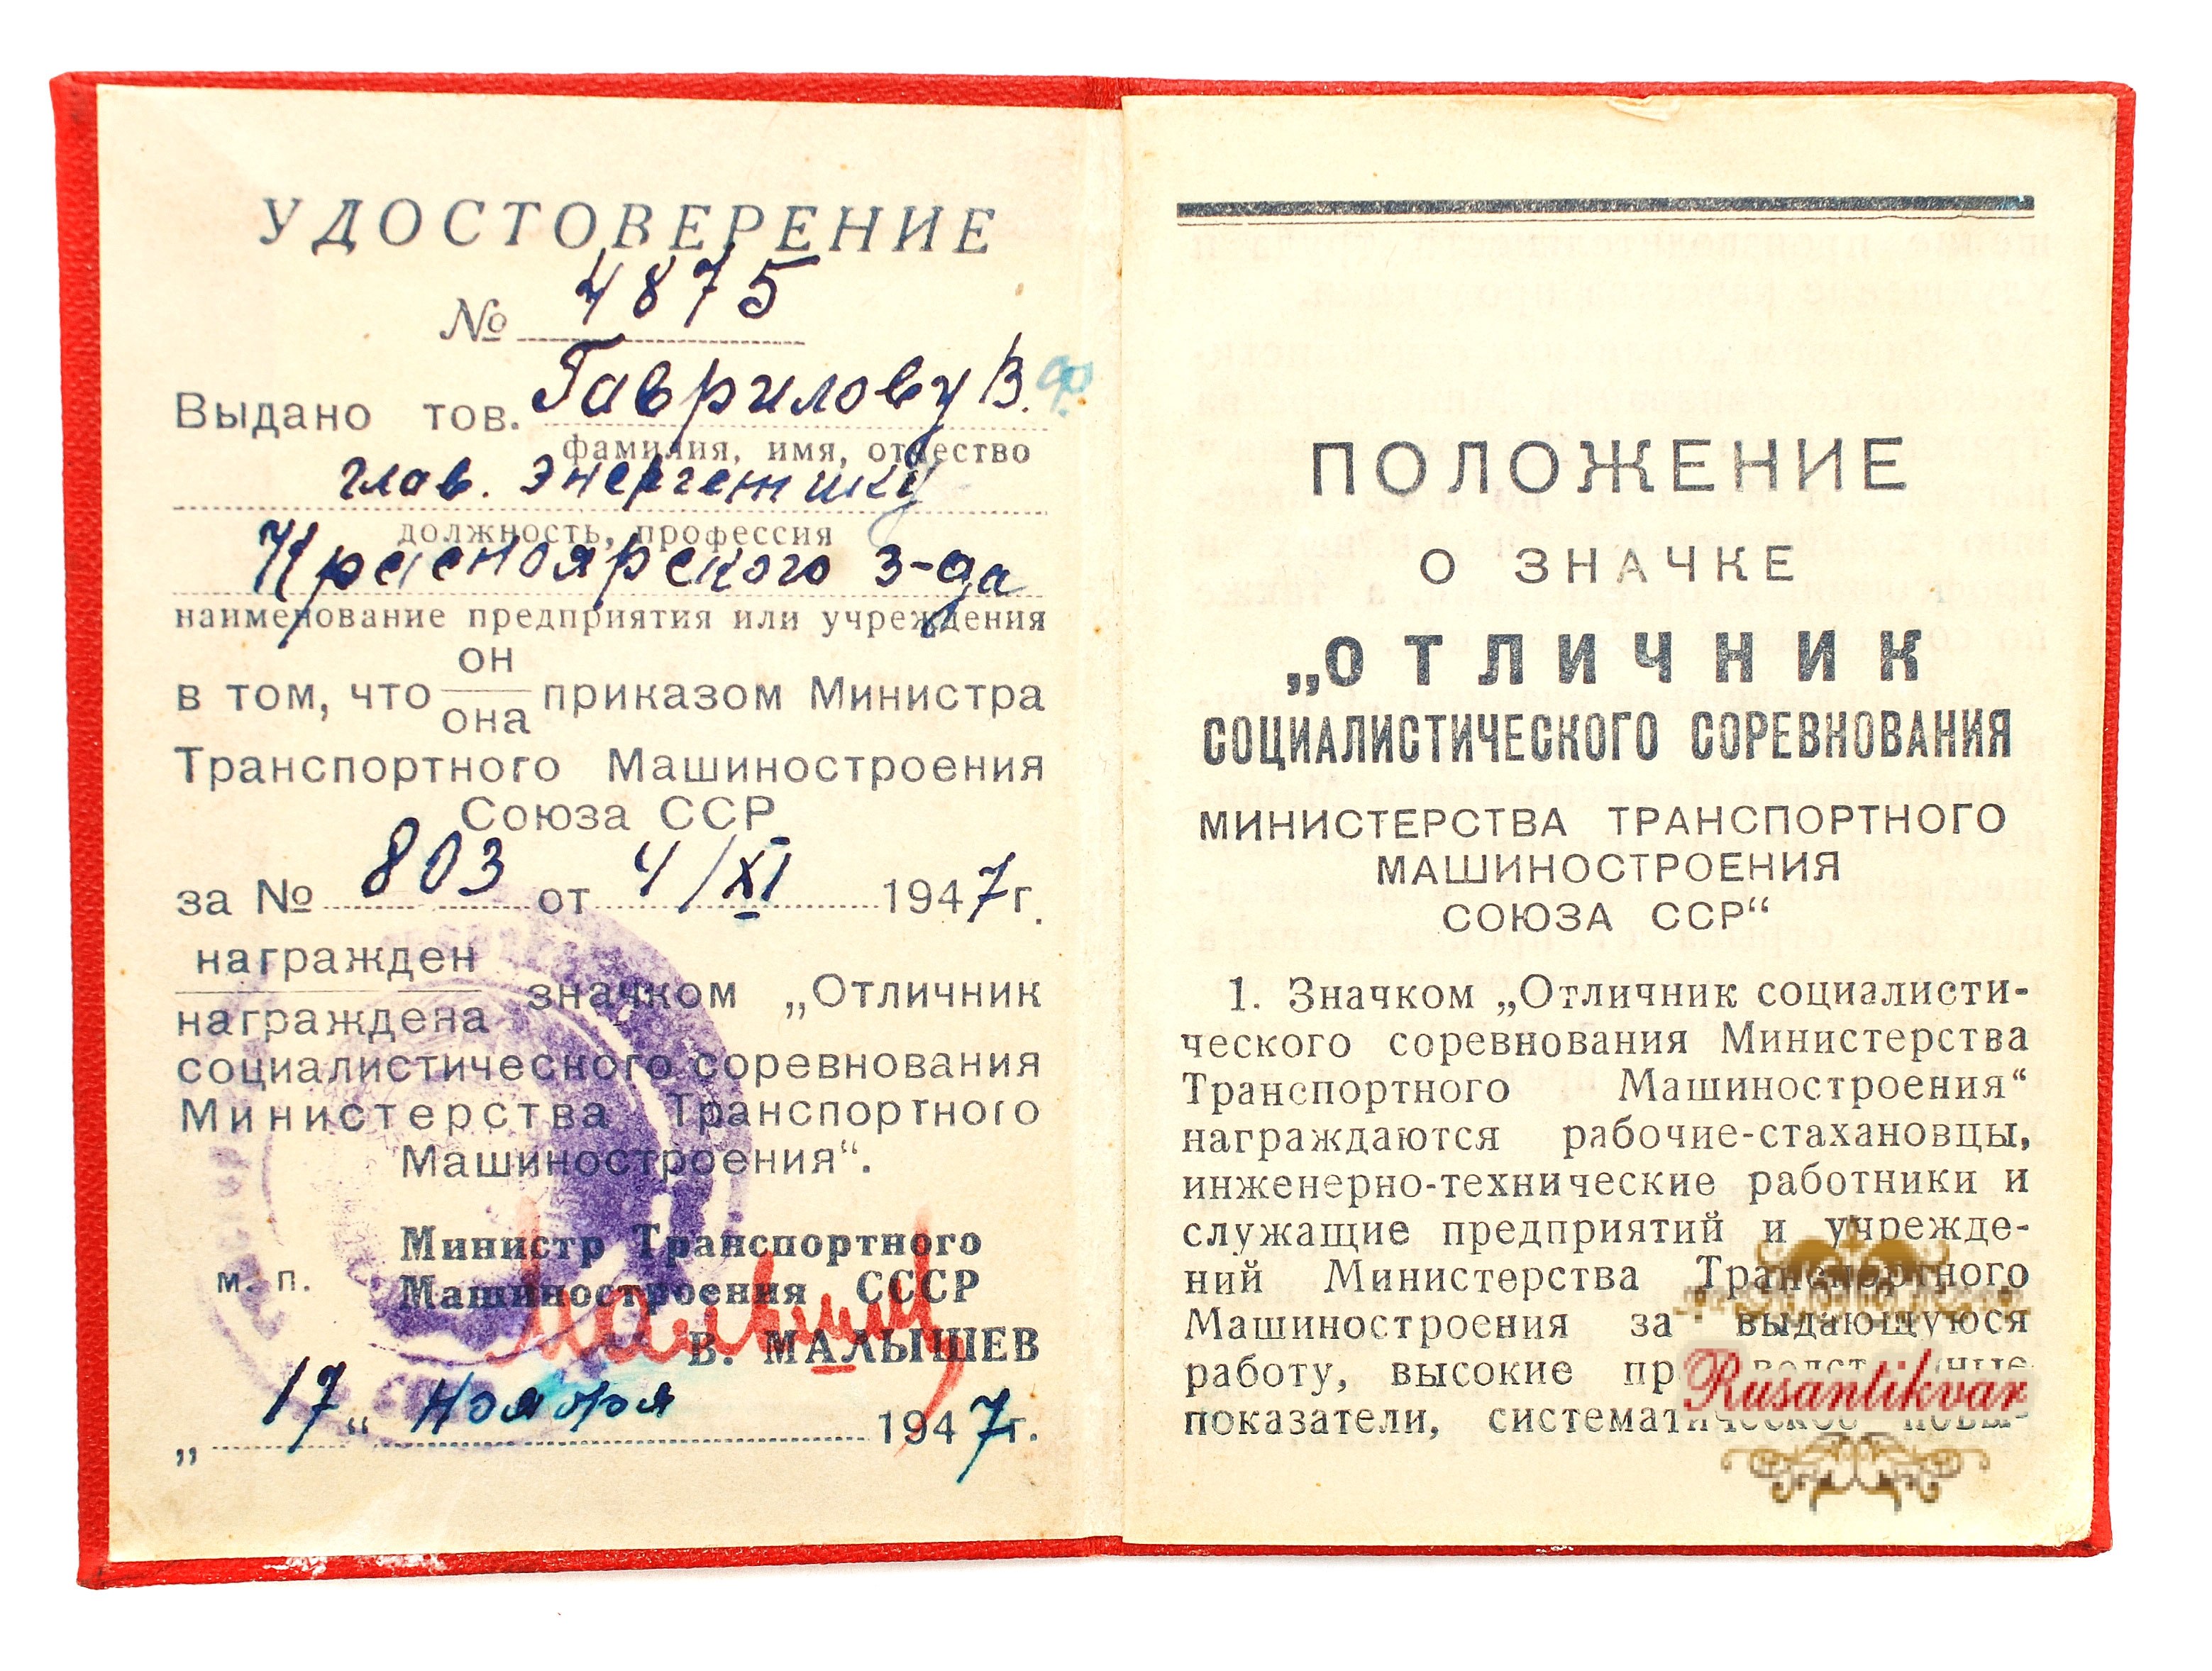 УДОСТОВЕРЕНИЕ
№ 4875
Выдано тов. Гаврилову В. Ф.
фамилия, имя, отчество
глав. энергетику
должность, профессия
Красноярского з-да
наименование предприятия или учреждения
он
в том, что приказом Министра
она
Транспортного Машиностроения
Союза ССР
за № 803 от 4/XI 1947г.
награжден
значком „Отличник
награждена
социалистического соревнования
Министерства Транспортного
Машиностроения“.
Министр Транспортного
м. п. Машиностроения СССР
В. МАЛЫШЕВ
„17“ ноября 1947г.
ПОЛОЖЕНИЕ
О ЗНАЧКЕ
„ОТЛИЧНИК
СОЦИАЛИСТИЧЕСКОГО СОРЕВНОВАНИЯ
МИНИСТЕРСТВА ТРАНСПОРТНОГО
МАШИНОСТРОЕНИЯ
СОЮЗА ССР“
1. Значком „Отличник социалисти-
ческого соревнования Министерства
Транспортного Машиностроения“
награждаются рабочие-стахановцы,
инженерно-технические работники и
служащие предприятий и учрежде-
ний Министерства Транспортного
Машиностроения за выдающуюся
работу, высокие производственные
показатели, систематическое повы-
Rusantikvar